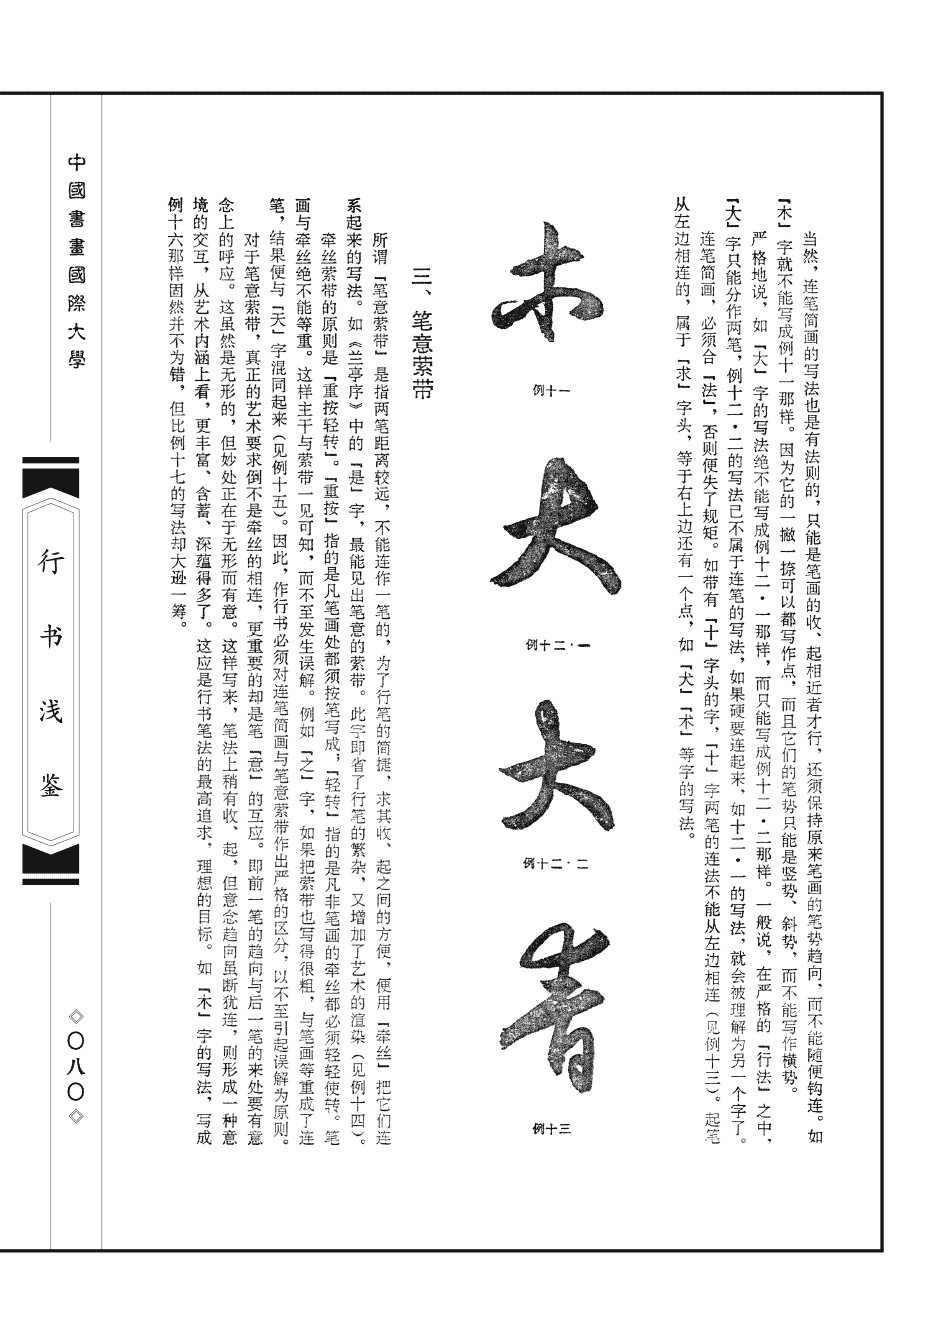 当然，连笔简画的写法也是有法则的，只能是笔画的收、起相近者才行，还须保持原来笔画的笔势趋向，而不能随便钩连。如
『木』字就不能写成例十一那样。因为它的一撇一捺可以都写作点，而且它们的笔势只能是竖势、斜势，而不能写作横势。
严格地说，如『大』字的写法绝不能写成例十二·一那样，而只能写成例十二·二那样。一般说，在严格的『行法』之中，
『大』字只能分作两笔，例十二·二的写法已不属于连笔的写法，如果硬要连起来，如十二·一的写法，就会被理解为另一个字了。
连笔简画，必须合『法』，否则便失了规矩。如带有『十』字头的字，『十』字两笔的连法不能从左边相连（见例十三）。起笔
从左边相连的，属于『求』字头，等于右上边还有一个点，如『犬』『术』等字的写法。
木
例十一
大
例十二·一
大
例十二·二
青
例十三
三、笔意萦带
所谓『笔意萦带』是指两笔距离较远，不能连作一笔的，为了行笔的简捷，求其收、起之间的方便，便用『牵丝』把它们连
系起来的写法。如《兰亭序》中的『是』字，最能见出笔意的萦带。此字即省了行笔的繁杂，又增加了艺术的渲染（见例十四）。
牵丝萦带的原则是『重按轻转』。『重按』指的是凡笔画处都须按笔写成；『轻转』指的是凡非笔画的牵丝都必须轻轻使转。笔
画与牵丝绝不能等重。这样主干与萦带一见可知，而不至发生误解。例如『之』字，如果把萦带也写得很粗，与笔画等重成了连
笔，结果便与『天』字混同起来（见例十五）。因此，作行书必须对连笔简画与笔意萦带作出严格的区分，以不至引起误解为原则。
对于笔意萦带，真正的艺术要求倒不是牵丝的相连，更重要的却是笔『意』的互应。即前一笔的趋向与后一笔的来处要有意
念上的呼应。这虽然是无形的，但妙处正在于无形而有意。这样写来，笔法上稍有收、起，但意念趋向虽断犹连，则形成一种意
境的交互，从艺术内涵上看，更丰富、含蓄、深蕴得多了。这应是行书笔法的最高追求，理想的目标。如『木』字的写法，写成
例十六那样固然并不为错，但比例十七的写法却大逊一筹。
中國書畫國際大學
行书浅鉴
◇〇八〇◇